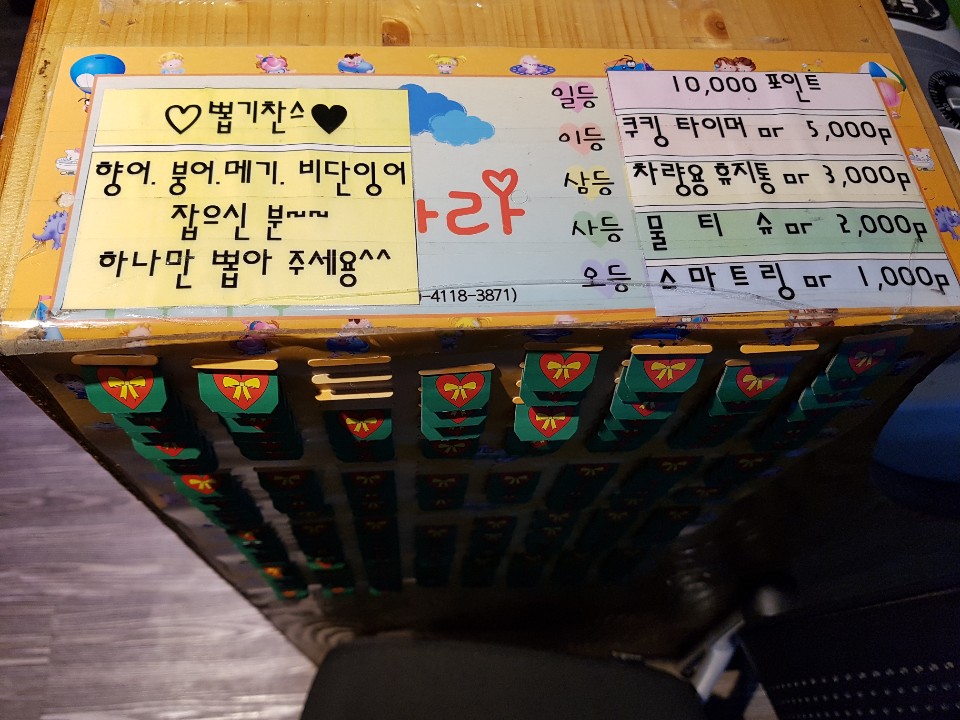 ♡뽑기찬스♥
향어. 붕어.메기. 비단잉어
잡으신 분~~
하나만 뽑아 주세용^^
라
-4118-3871)
일등 10,000 포인트
이등 쿠킹 타이머 or 5,000p
삼등 차량용 휴지통 or 3,000p
사등 물 티 슈 or 2,000p
오등 스마트링 or 1,000p